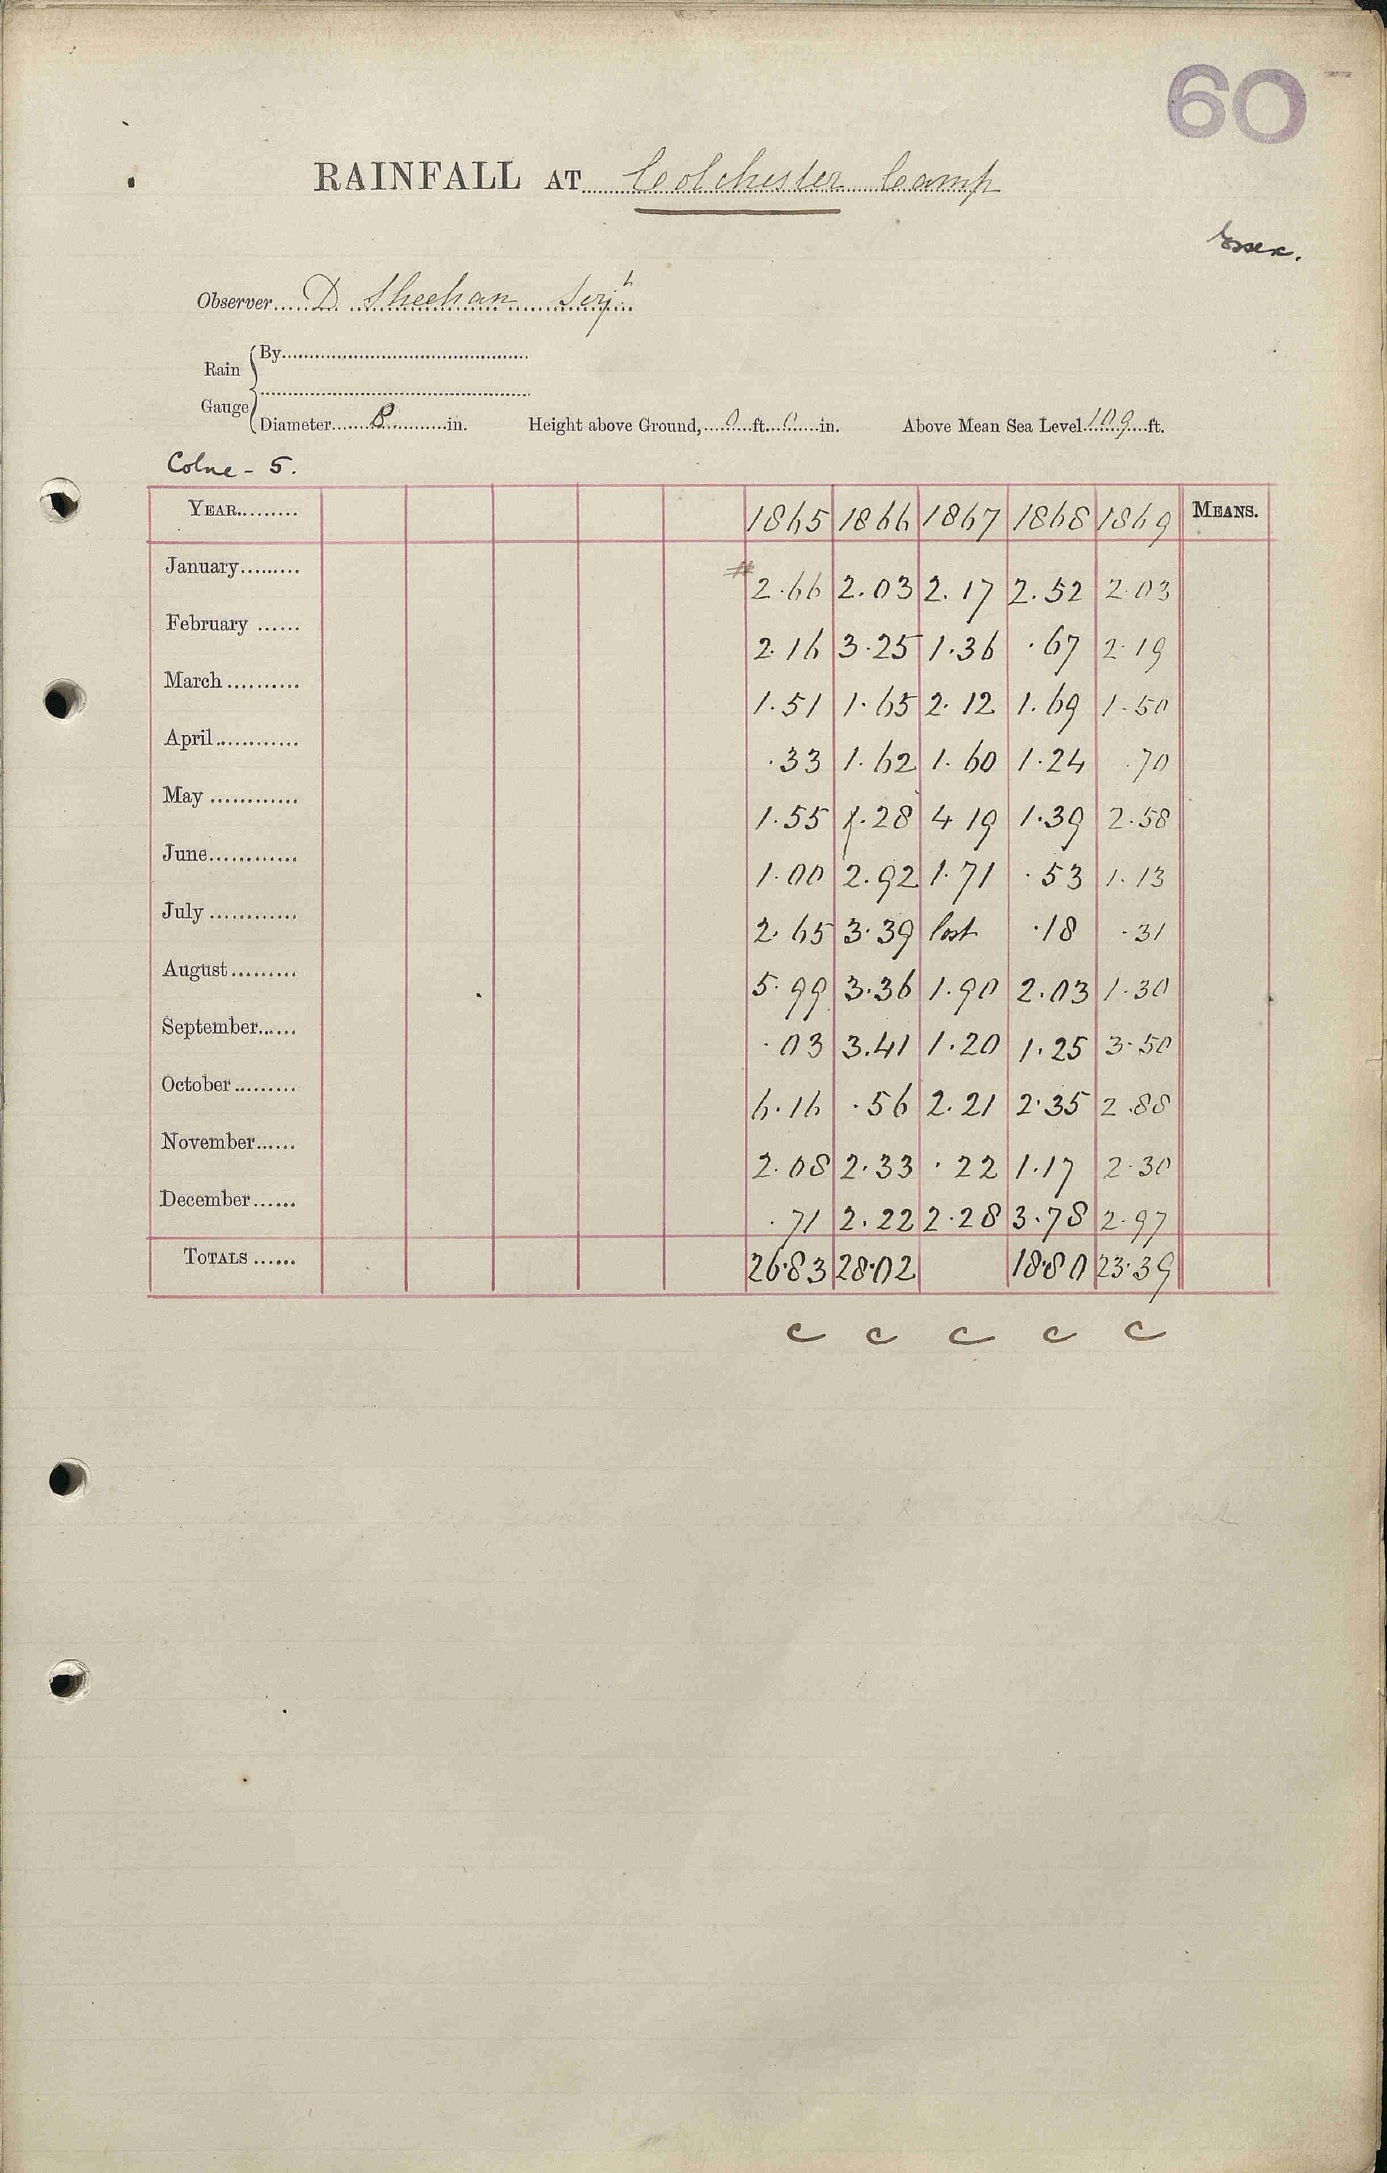 60
RAINFALL AT Colchester Camp
Essex.
Observer D Sheehan Serjt
Rain Gauge
By
Diameter 8 in. Height above Ground, 0 ft. 0 in. Above Mean Sea Level 109 ft.
Colne - 5.
YEAR 1865 1866 1867 1868 1869 MEANS.
January # 2.66 2.03 2.17 2.52 2.03
February 2.16 3.25 1.36 .67 2.19
March 1.51 1.65 2.12 1.69 1.50
April .33 1.62 1.60 1.24 .70
May 1.55 1.28 4 19 1.39 2.58
June 1.00 2.92 1.71 .53 1.13
July 2.65 3.39 lost .18 .31
August 5.99 3.36 1.90 2.03 1.30
September .03 3.41 1.20 1.25 3.50
October 6.16 .56 2.21 2.35 2.88
November 2.08 2.33 .22 1.17 2.30
December .71 2.22 2.28 3.78 2.97
TOTALS 26.83 28.02 18.80 23.39
c c c c c